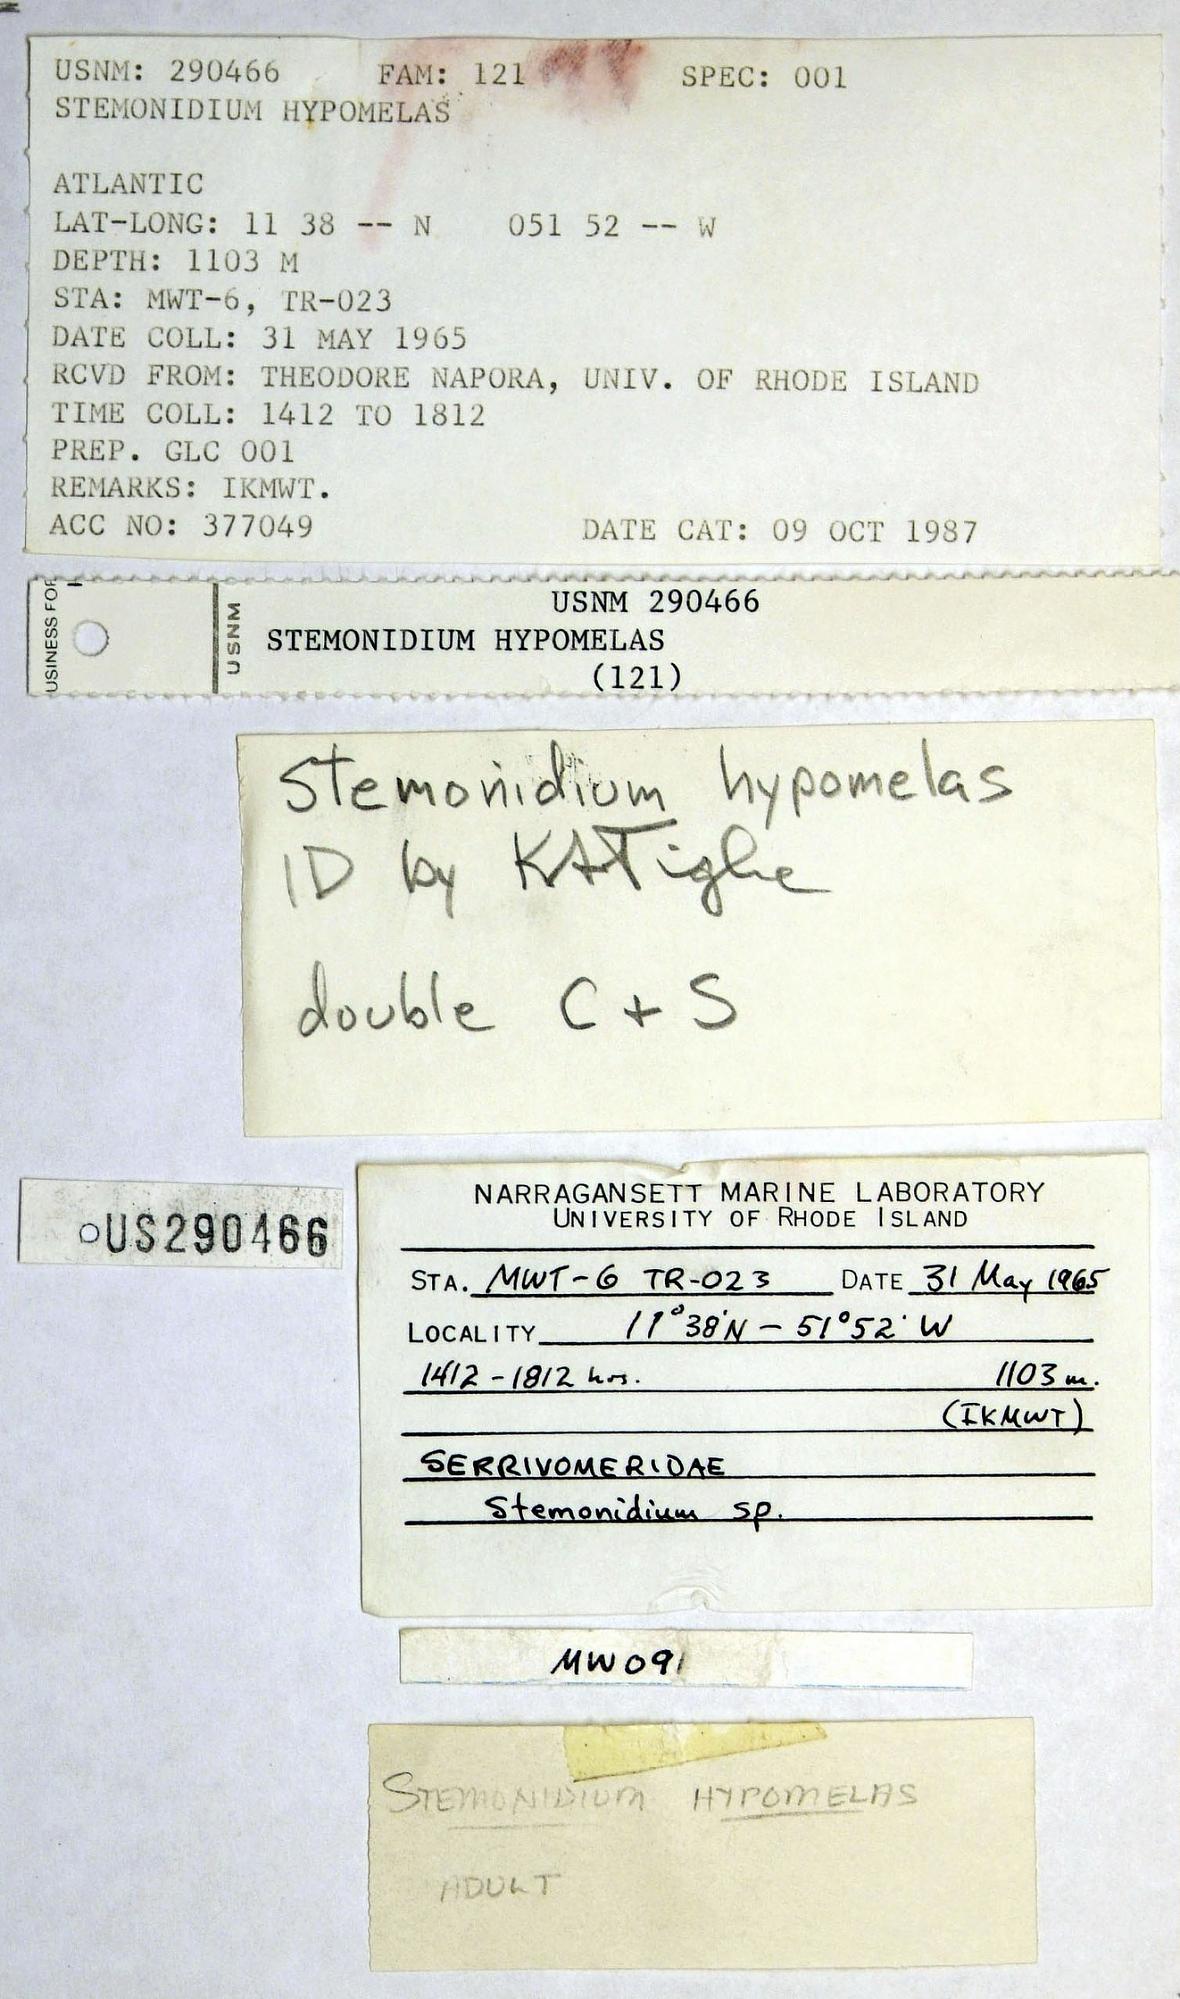 USNM: 290466 FAM: 121 SPEC: 001
STEMONIDIUM HYPOMELAS
ATLANTIC
LAT-LONG: 11 38 -- N 051 52 -- W
DEPTH: 1103 M
STA: MWT-6, TR-023
DATE COLL: 31 MAY 1965
RCVD FROM: THEODORE NAPORA, UNIV. OF RHODE ISLAND
TIME COLL: 1412 TO 1812
PREP. GLC 001
REMARKS: IKMWT.
ACC NO: 377049 DATE CAT: 09 OCT 1987
USINESS FOR
USNM
USNM 290466
STEMONIDIUM HYPOMELAS
(121)
Stemonidium hypomelas
ID by KATighe
double C + S
US290466
NARRAGANSETT MARINE LABORATORY
UNIVERSITY OF RHODE ISLAND
STA. MWT-6 TR-023 DATE 31 May 1965
LOCALITY 11°38'N - 51°52' W
1412-1812 hrs. 1103 m.
(IKMWT)
SERRIVOMERIDAE
Stemonidium sp.
MW091
STEMONIDIUM HYPOMELAS
ADULT